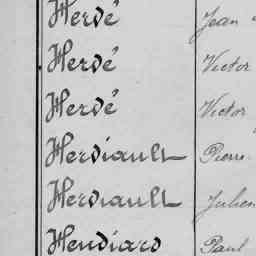 Hervé Jean
Hervé Victor
Hervé Victor
Herviault Pierre
Herviault Julien
Heudiard Paul